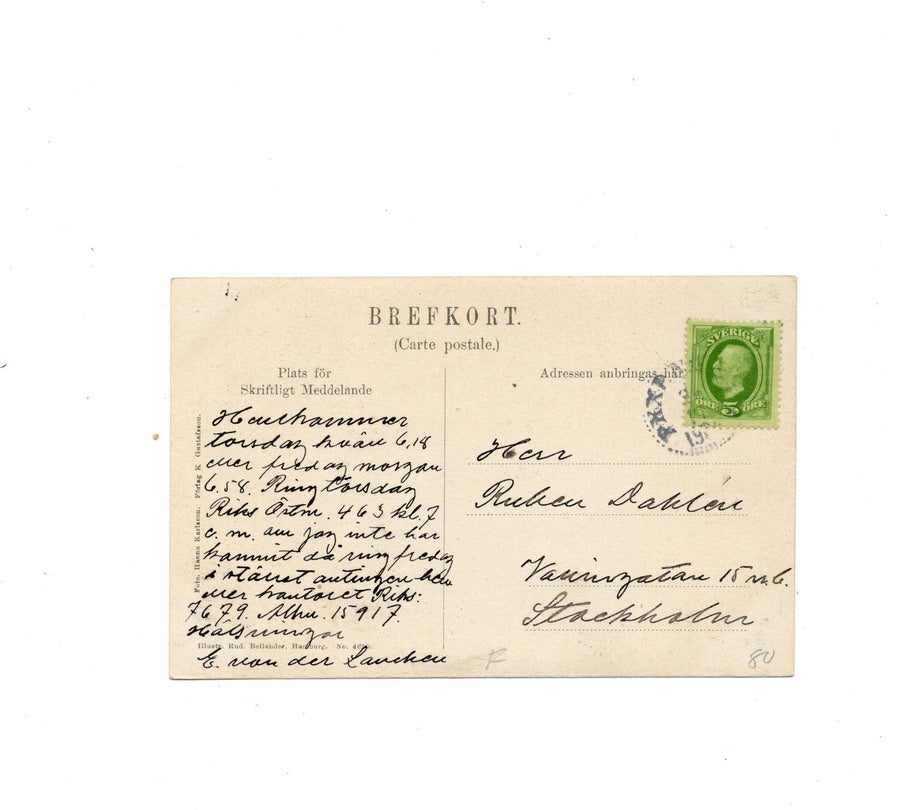 BREFKORT.
(Carte postale.)
Plats för
Skriftligt Meddelande
Adressen anbringas här
SVERIGE
ÖRE 5 ÖRE
PKXP
19
Hemkommer
torsdag kväll 6,18
eller fredag morgon
6.58. Ring torsdag
Riks Östm. 463 kl. 7
e. m. om jag inte har
kommit då ring fredag
i stället antingen hem
eller kontoret Riks:
7679. Allm. 15917.
Hälsningar
E. von der Lancken
Herr
Ruben Dahlén
15
Stockholm
Foto. Hanna Karlsson. Förlag K. Gustafsson.
Illustr. Rud. Bellander, Hamburg. No.
F
80